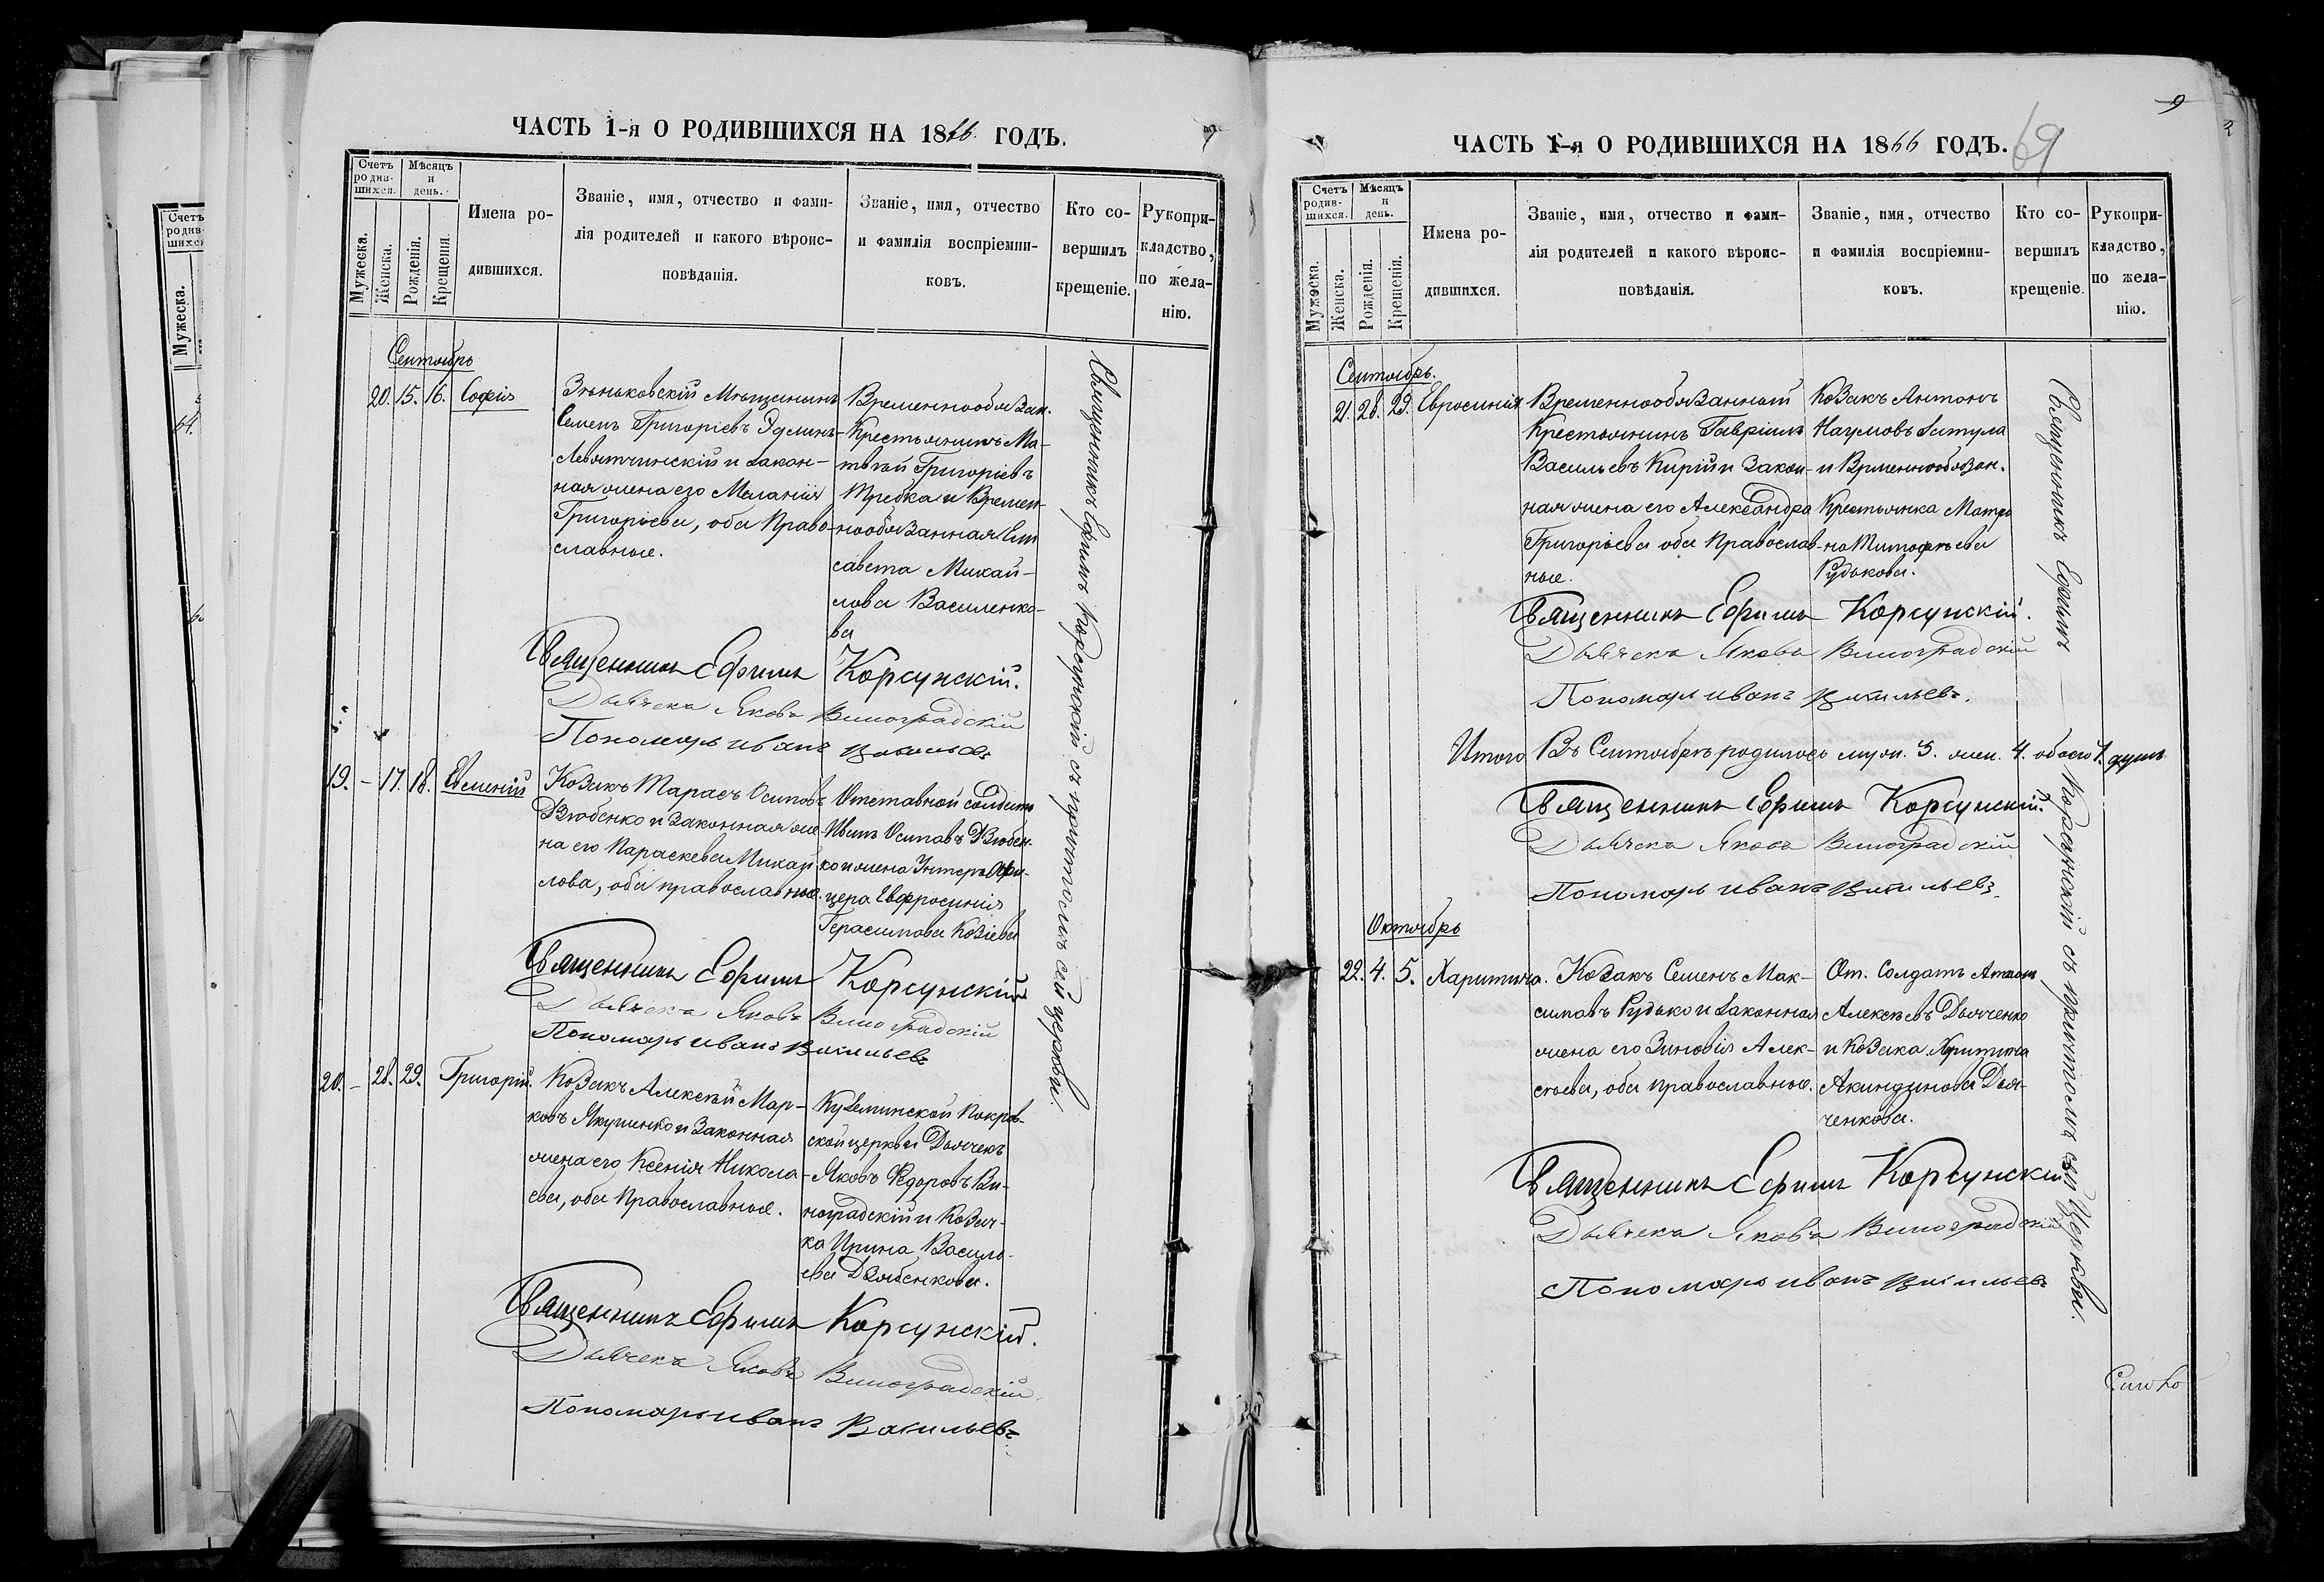 ЧАСТЬ 1-я О РОДИВШИХСЯ НА 1866 ГОДЪ.
Счетъ родив-шихся.
Мѣсяцъ и день.
Мужеска.
Женска.
Рожденія.
Крещенія.
Имена ро-
дившихся.
Званіе, имя, отчество и фами-
лія родителей и какого вѣроис-
повѣданія.
Званіе, имя, отчество
и фамилія воспріемни-
ковъ.
Кто со-
вершилъ
крещеніе.
Рукопри-
кладство,
по жела-
нію.
Сентябрь
20. 15. 16. Софія
Зѣньковскій Мѣщанинъ
Семенъ Григоріевъ
и закон-
ная жена его Меланія
Григорьева, оба Право-
славные.
Временнообязан.
Крестьянинъ Ма-
твѣй Григоріевъ
и Времен-
нообязанная Ели
савета Михай-
лова Василенко-
ва
Священникъ Ефимъ Корсунскій.
Дьячекъ Яковъ Виноградскій
Пономарь Иванъ Васильевъ
19. – 17. 18. Евменій
Козакъ Тарасъ Осиповъ
Дзюбенко и законная же-
на его Параскева Михай
лова, оба православные.
Отставной Солдатъ
Иванъ Осиповъ Дзюбен-
ко и жена Унтеръ Офи-
цера Евфросинія
Герасимова Козіева
Священникъ Ефимъ Корсунскій
Дьячекъ Яковъ Виноградскій
Пономарь Иванъ Васильевъ
20. – 28. 29. Григорій.
Козакъ Алексѣй Мар-
ковъ Якушенко и Законная
жена его Ксенія Никола-
ева, оба Православные.
Куземинской Покров-
ской церкви Дьячекъ
Яковъ Федоровъ Ви-
ноградскій и Козач-
ка Ирина Василь-
ева Дзюбенкова.
Священникъ Ефимъ Корсунскій.
Дьячекъ Яковъ Виноградскій
Пономарь Иванъ Васильевъ
Священникъ Ефимъ Корсунскій съ причтомъ сей церкви.
9
69
ЧАСТЬ 1-я О РОДИВШИХСЯ НА 1866 ГОДЪ.
Счетъ родив-шихся.
Мѣсяцъ и день.
Мужеска.
Женска.
Рожденія.
Крещенія.
Имена ро-
дившихся.
Званіе, имя, отчество и фами-
лія родителей и какого вѣроис-
повѣданія.
Званіе, имя, отчество
и фамилія воспріемни-
ковъ.
Кто со-
вершилъ
крещеніе.
Рукопри-
кладство,
по жела-
нію.
Сентябрь.
21. 28. 29. Евросинія
Временнообязанный
Крестьянинъ Гавріилъ
Васильевъ Кирій и Закон-
ная жена его Александра
Григорьева оба Православ-
ные.
Козакъ Антонъ
Наумовъ
и Врменнообязан.
Крестьянка Матро
на Тимофѣева
Рудькова.
Священникъ Ефимъ Корсунскій.
Дьячекъ Яковъ Виноградскій
Пономарь Иванъ Васильевъ.
Итого Въ Сентябрѣ родилось муж. 3. жен. 4. обоего 7. душъ
Священникъ Ефимъ Корсунскій.
Дьячекъ Яковъ Виноградскій
Пономарь Иванъ Васильевъ.
Октябрь
22. 4. 5. Харитина.
Козакъ Семенъ Мак-
симовъ Рудько и Законная
жена его Зиновія Алек-
сѣева, оба православные.
От. Солдатъ
Алексѣевъ Дьяченко
и Козака Харитина
Акиндинова Дья-
ченкова.
Священникъ Ефимъ Корсунскій
Дьячекъ Яковъ Виноградскій
Пономарь Иванъ Васильевъ
Священникъ Ефимъ Корсунскій съ причтомъ сей Церкви.